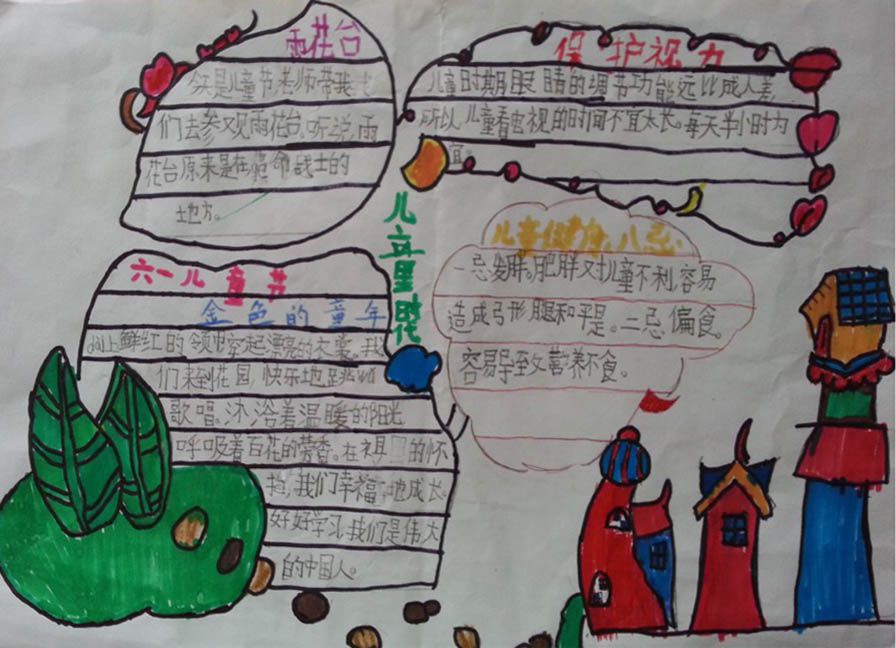 雨花台
今天是儿童节,老师带我
们去参观雨花台。听说,雨
花台原来是在革命战士的
地方。
保护视力
儿童时期眼睛的调节功能远比成人差,
所以儿童看电视的时间不宜太长。每天半小时为
宜。
儿童
六一儿童节
金色的童年
上鲜红的领巾穿起漂亮的衣裳。我
们来到花园,快乐地跳
歌唱。沐浴着温暖的阳光
呼吸着百花的芳香。在祖 的怀
抱,我们幸福地成长。
好好学习我们是伟大
的中国人。
儿童健康八忌:
一忌发胖。肥胖对儿童不利,容易
造成弓形腿和平是。二忌偏食。
容易导至营养不食。